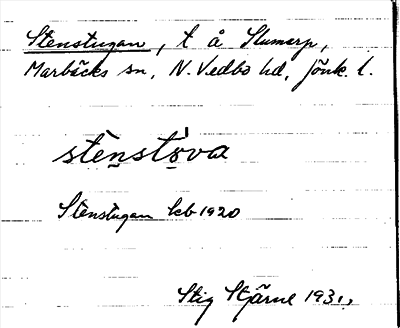 Stenstugan, t å Slumarp,
Marbäcks sn, N. Vedbo hd, Jönk. l.
stènstò̤va
Stenstugan kcb 1920
Stig Stjärne 1931.